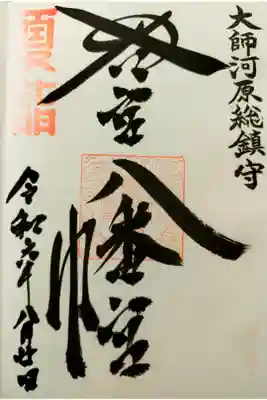 大師河原総鎮守
若宮八幡宮
夏詣
令和六年八月廿日